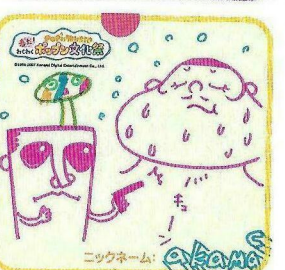 pop'n music
ポップン文化祭
©1998 2007 Konami Digital Entertainment Co., Ltd.
ムキョーン
ニックネーム: akama